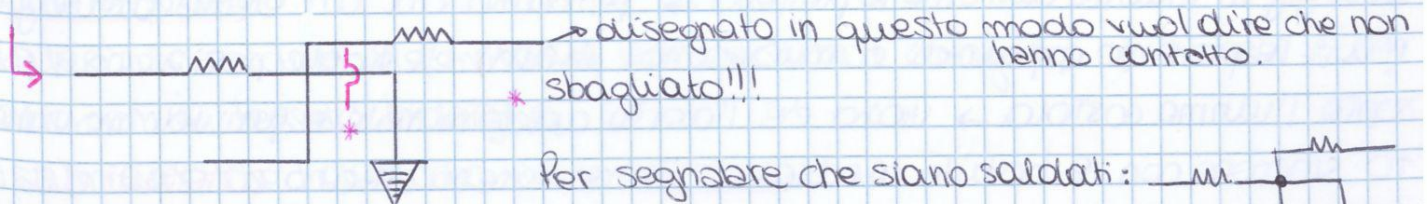 → disegnato in questo modo vuol dire che non
hanno contatto.
* sbagliato!!!
*
Per segnalare che siano saldati: